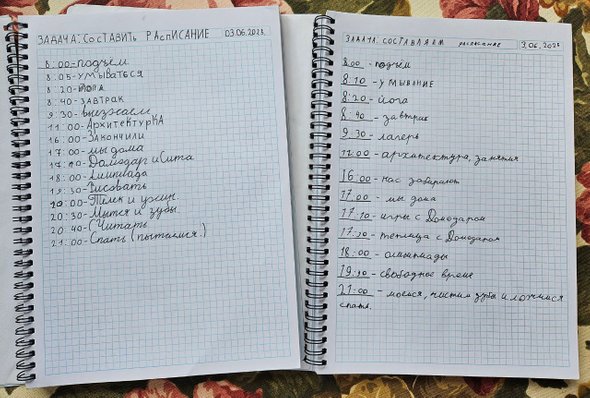 ЗАДАЧА: СОСТАВИТЬ РАСПИСАНИЕ 03.06.2023
8:00-подъём
8:05-умываться
8:20-йога
8:40-завтрак
9:30-выезжаем
11:00-Архитектурка
16:00-Закончили
17:00-мы дома
17:10-Домодар и Сита
18:00-Алипиада
19:30-Рисовать
20:00-Телек и ужин.
20:30-Мытся и зубы.
20:40-Считать
21:00-Спать (пытаемся.)
ЗАДАЧА: СОСТАВЛЯЕМ расписание 3.06.2023
8:00 - подъём
8:10 - умывание
8:20 - йога
8:40 - завтрак
9:30 - лагерь
11:00 - архитектура, занятия
16:00 - нас забирают
17:00 - мы дома
17:10 - игры с Домодаром
17:30 - теплица с Домодаром
18:00 - олимпиады
19:30 - свободное время
21:00 - моемся, чистим зубы и ложимся
спать.